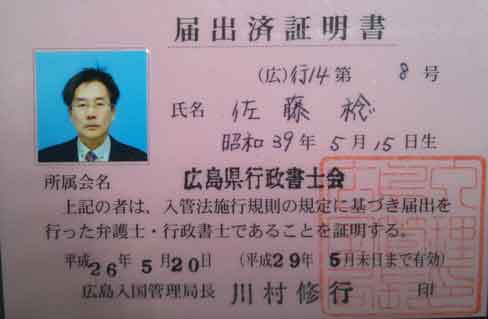 届出済証明書
(広)行14第 8号
氏名 佐藤稔
昭和39年5月15日生
所属会名 広島県行政書士会
上記の者は、入管法施行規則の規定に基づき届出を
行った弁護士・行政書士であることを証明する。
平成26年5月20日 (平成29年5月末日まで有効)
広島入国管理局長 川村修行 印